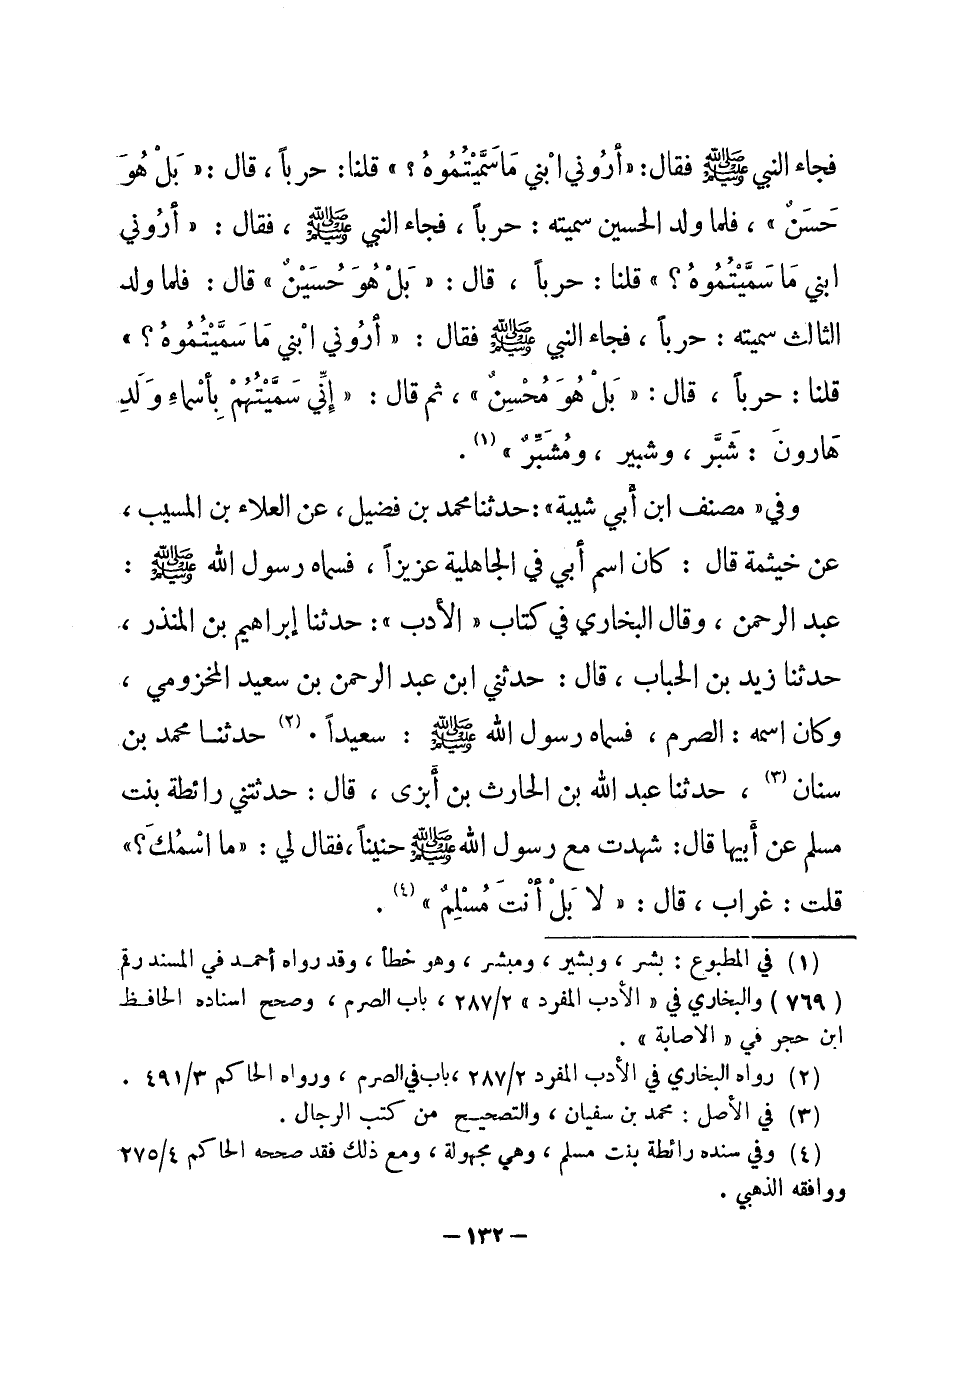 فجاء النبي ﷺ فقال: «أَرُوني ابْني مَا سَمَّيْتُمُوهُ ؟ » قلنا: حرباً ، قال :« بَلْ هُوَ
حَسَنٌ » ، فلما ولد الحسين سميته : حرباً ، فجاء النبي ﷺ ، فقال : « أَرُوني
ابني مَا سَمَّيْتُمُوهُ ؟ » قلنا : حرباً ، قال : « بَلْ هُوَ حُسَيْنٌ » قال : فلما ولد
الثالث سميته : حرباً ، فجاء النبي ﷺ فقال : « أَرُوني ابْني مَا سَمَّيْتُمُوهُ ؟ »
قلنا : حرباً ، قال : « بَلْ هُوَ مُحْسِنٌ » ، ثم قال : « إِنِّي سَمَّيْتُهُمْ بِأَسْماءِ وَلَدِ
هَارونَ : شَبَّر ، وشبير ، ومُشَبِّرٌ » (١) .
وفي« مصنف ابن أبي شيبة»:حدثنا محمد بن فضيل، عن العلاء بن المسيب ،
عن خيثمة قال : كان اسم أبي في الجاهلية عزيزاً ، فسماه رسول الله ﷺ :
عبد الرحمن ، وقال البخاري في كتاب « الأدب »: حدثنا إبراهيم بن المنذر ،
حدثنا زيد بن الحباب ، قال : حدثني ابن عبد الرحمن بن سعيد المخزومي ،
وكان اسمه : الصرم ، فسماه رسول الله ﷺ : سعيداً . (٢) حدثنا محمد بن
سنان (٣) ، حدثنا عبد الله بن الحارث بن أبزى ، قال : حدثتني رائطة بنت
مسلم عن أبيها قال: شهدت مع رسول الله ﷺ حنيناً ،فقال لي : «ما اسْمُكَ؟»
قلت : غراب ، قال : « لا بَلْ أَنْتَ مُسْلِمٌ » (٤) .
(١) في المطبوع : بشر ، وبشير ، ومبشر ، وهو خطأ ، وقد رواه أحمد في المسند رقم
( ٧٦٩ ) والبخاري في « الأدب المفرد » ٢٨٧/٢ ، باب الصرم ، وصحح اسناده الحافظ
ابن حجر في « الاصابة » .
(٢) رواه البخاري في الأدب المفرد ٢٨٧/٢ ،باب في الصرم ، ورواه الحاكم ٤٩١/٣ .
(٣) في الأصل : محمد بن سفيان ، والتصحيح من كتب الرجال .
(٤) وفي سنده رائطة بنت مسلم ، وهي مجهولة ، ومع ذلك فقد صححه الحاكم ٢٧٥/٤
ووافقه الذهبي .
— ١٣٢ —